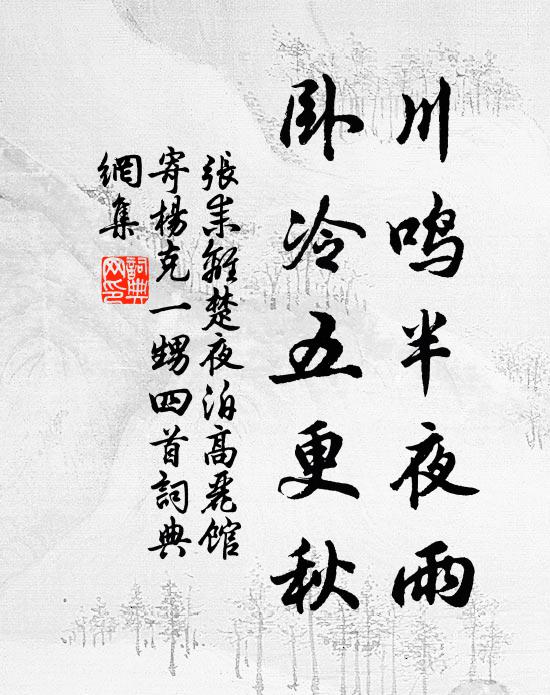 川鸣半夜雨
卧冷五更秋
張耒離楚夜泊高麗馆
寄楊克一甥四首詞典
網集
詞典
网印